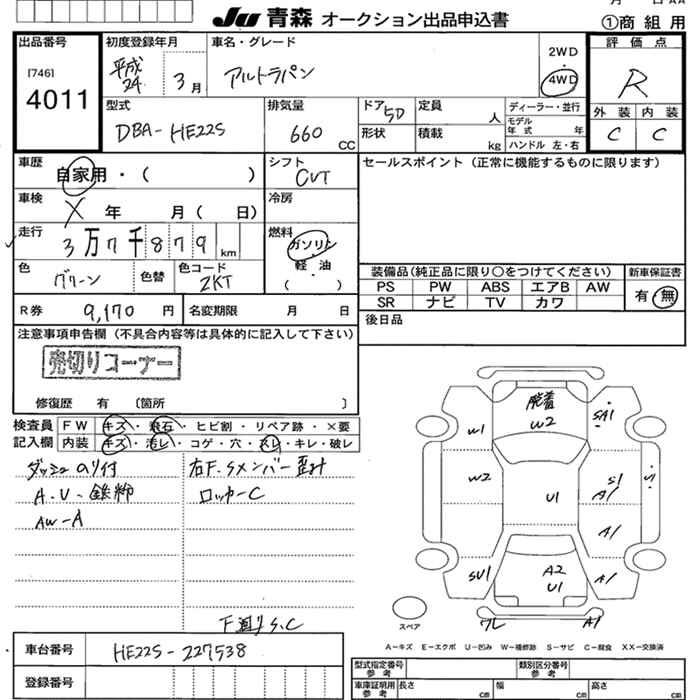 JU 青森 オークション出品申込書
①商 組 用
出品番号
[746]
4011
初度登録年月
平成24年 3月
車名・グレード
アルトラパン
2WD
・
4WD
評 価 点
R
外 装 内 装
C C
型式
DBA-HE22S
排気量
660 CC
ドア 5D
定員 人
形状
積載 kg
ディーラー・並行
モデル年式 年
ハンドル 左・右
車歴
自家用・( )
シフト
CVT
セールスポイント(正常に機能するものに限ります)
車検
X 年 月( 日)
冷房
走行
3万7千879 km
燃料
ガソリン
・
軽・油
( )
色
グリーン
色替
色コード
ZKT
装備品(純正品に限り○をつけてください)
新車保証書
PS PW ABS エアB AW
SR ナビ TV カワ
有・無
R券 9,170 円
名変期限 月 日
後日品
注意事項申告欄(不具合内容等は具体的に記入して下さい)
売切りコーナー
修復歴 有 〔箇所 〕
検査員
記入欄
FW キズ・飛石・ヒビ割・リペア跡・×要
内装 キズ・汚レ・コゲ・穴・スレ・キレ・破レ
ダッシュのり付
A.V-鉄粉
AW-A
右F.Sメンバー歪み
ロッカーC
下廻りS.C
脱着
W2
W1
SA1
W2
U1
S1
A1
S1
A1
SU1
A2
U1
A1
ワレ
A1
スペア
A-キズ E-エクボ U-凹み W-補修跡 S-サビ C-腐食 XX-交換済
車台番号
HE22S-227538
登録番号
型式指定番号
参考
類別区分番号
参考
車庫証明用
参考
長さ cm
幅 cm
高さ cm